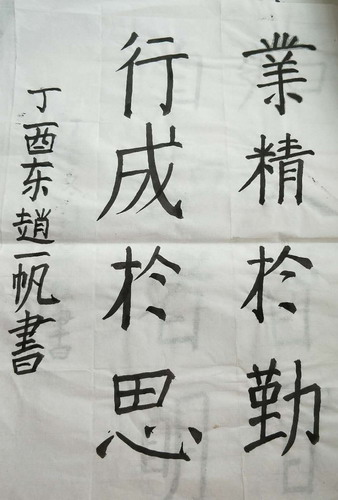 業精於勤
行成於思
丁酉东趙一帆書